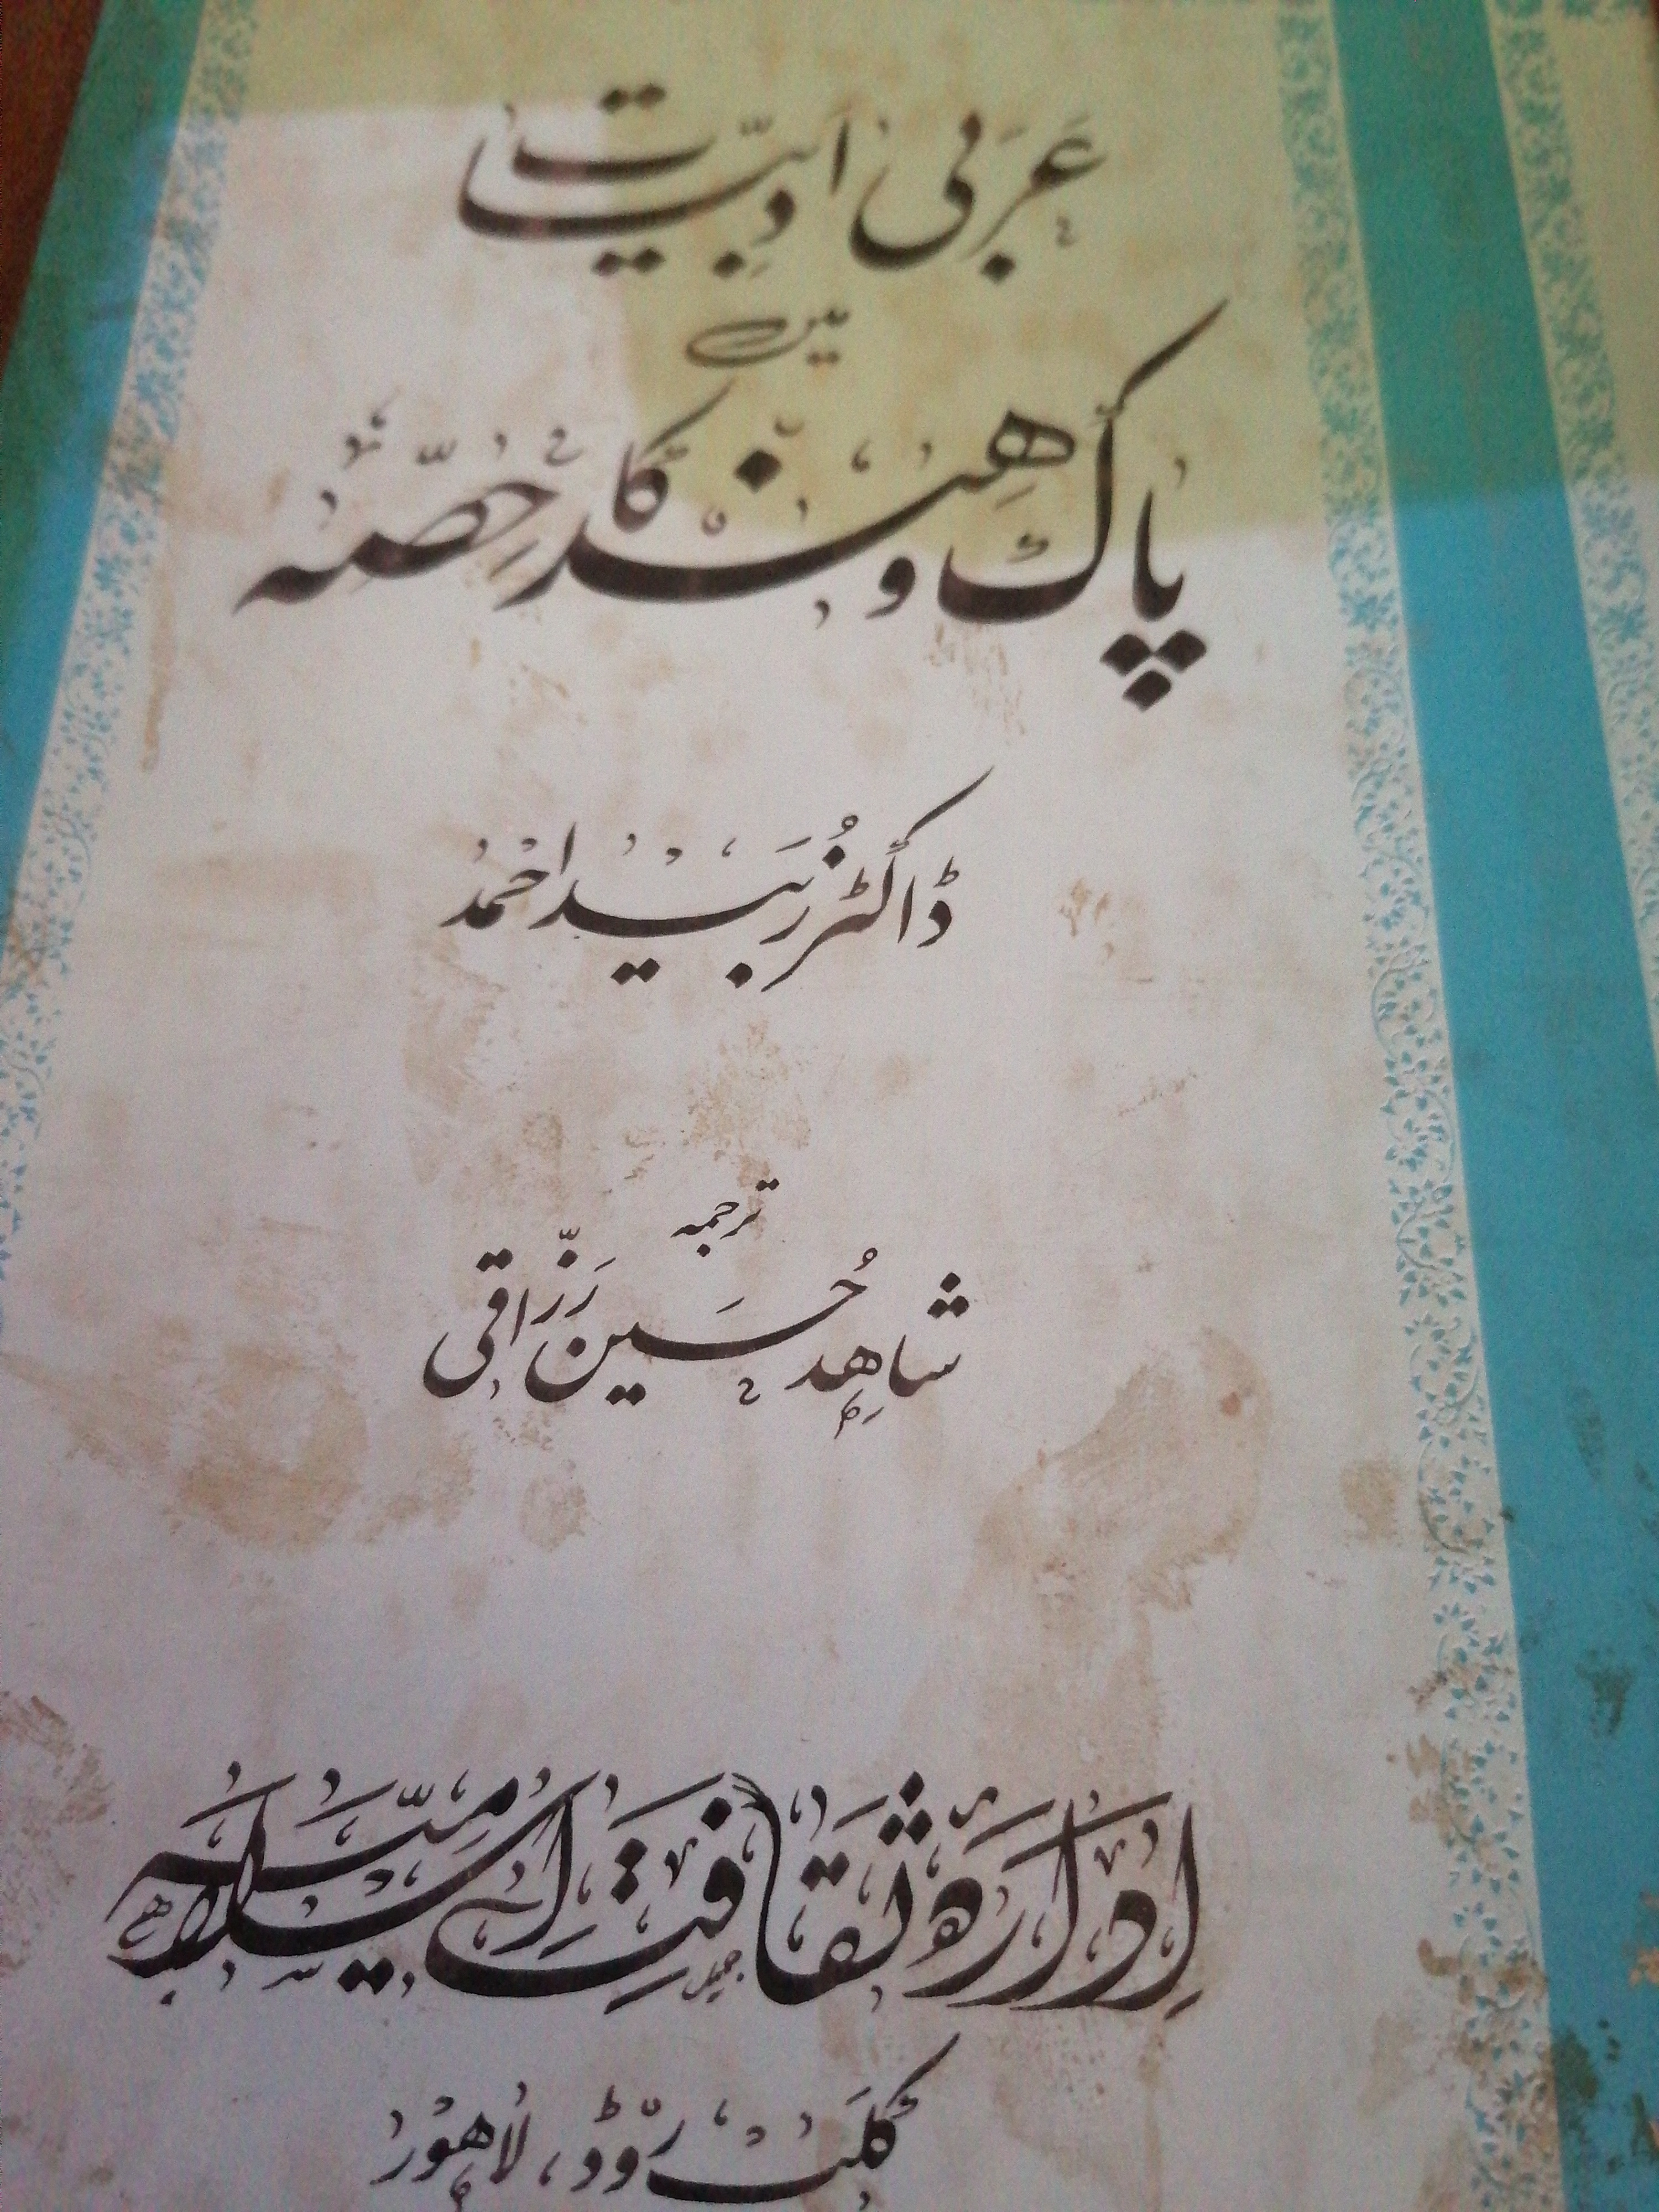 عربی ادبیات
میں
پاک و ہند کا حصّہ
ڈاکٹر زبید احمد
ترجمہ
شاہد حسین رزّاقی
ادارۂ ثقافت اسلامیّہ
کلب روڈ، لاہور